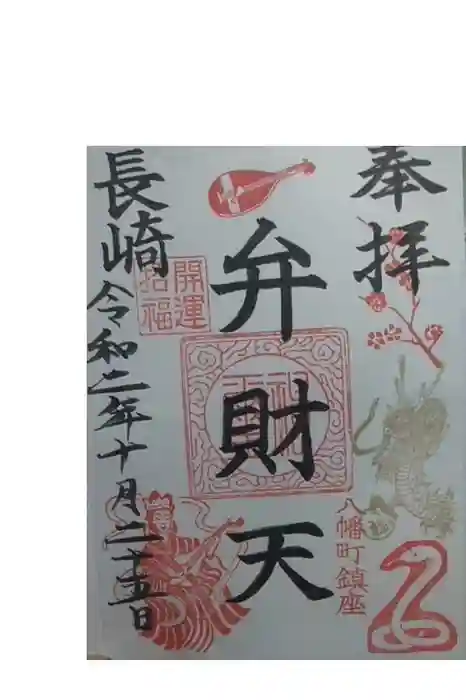 奉拝
弁財天
八幡町鎮座
開運
招福
長崎
令和二年十月二十五日